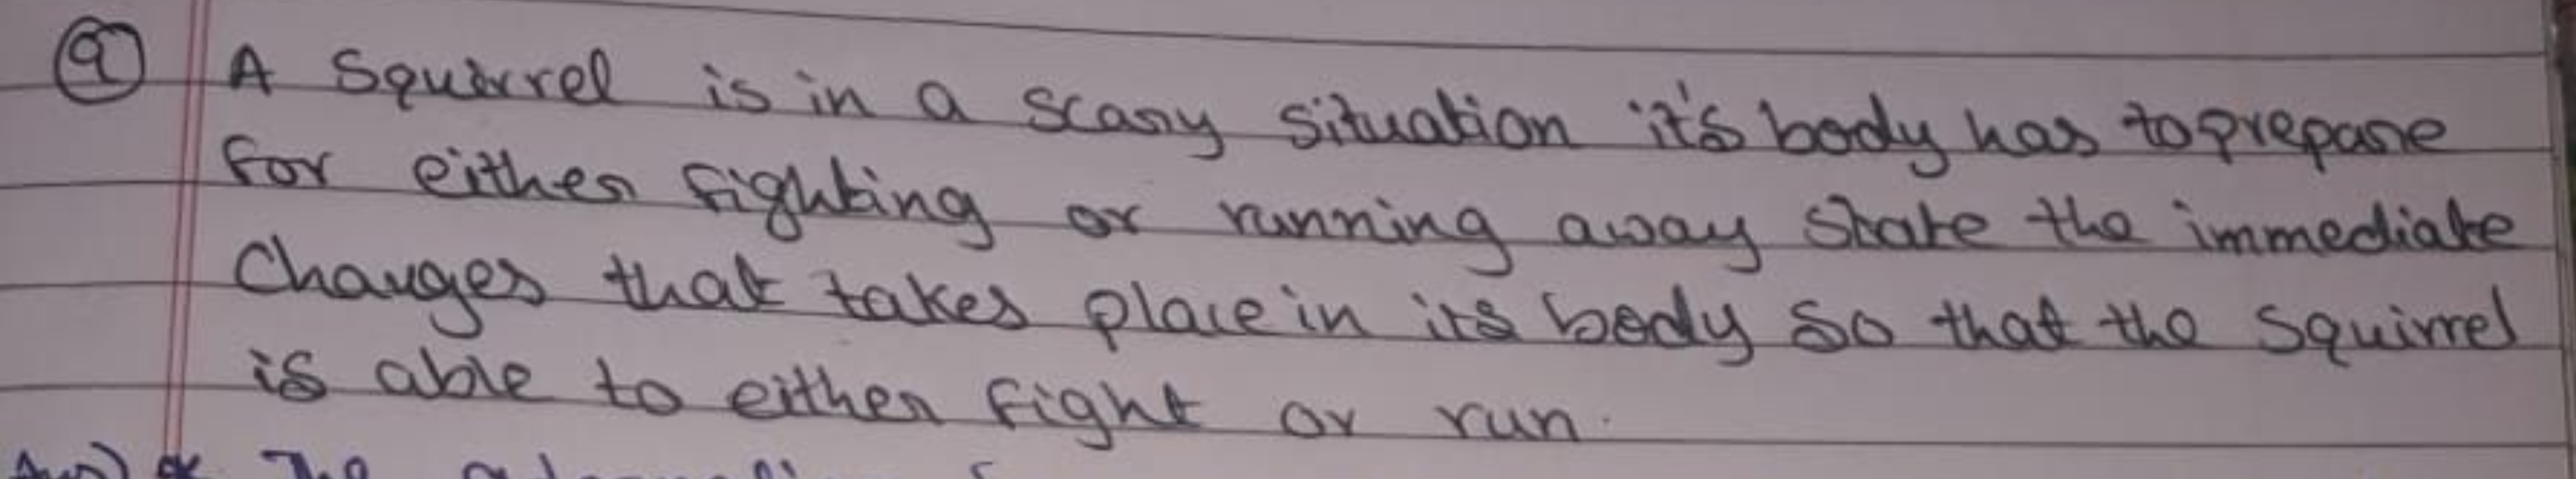 9 A Squirrel is in a scary situation it's body has to prepare
for either fighting or running away State the immediate
Changes that takes place in its body so that the squirrel
is able to either fight or run.
Ans) The